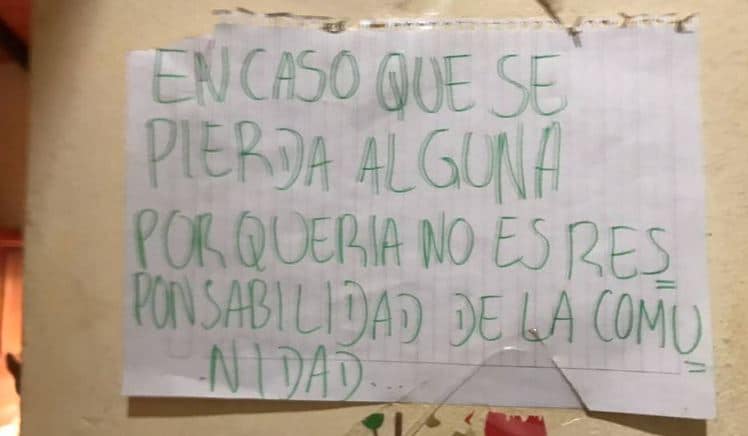 EN CASO QUE SE
PIERDA ALGUNA
PORQUERIA NO ES RES
PONSABILIDAD DE LA COMU
NIDAD...